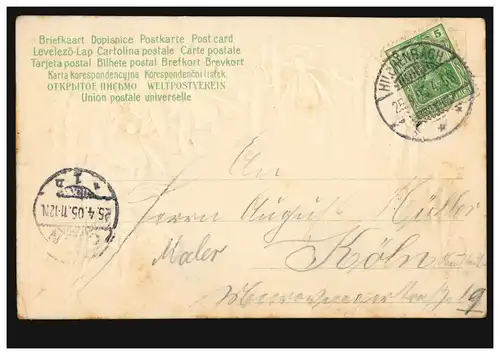 Briefkaart Dopisnice Postkarte Post card
Levelező-Lap Cartolina postale Carte postale
Tarjeta postal Bilhete postal Brefkort Brevkort
Karta korespondencyjna Korespondenční lístek
ОТКРЫТОЕ ПИСЬМО WELTPOSTVEREIN
Union postale universelle
5
HILCHENBACH
25. 4. 05. 11-12N.
An
Herrn August Müller
Maler
Köln
19